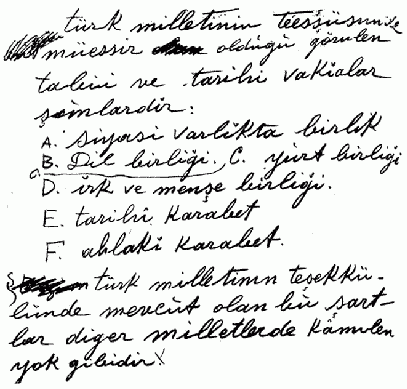 türk milletinin teessüsünde
müessir olduğu görülen
tabii ve tarihi vakialar
şunlardır:
A. Siyasi varlıkta birlik
B. Dil birliği. C. yurt birliği
D. ırk ve menşe birliği.
E. tarihi karabet
F. ahlaki karabet.
türk milletinin teşekkü-
lünde mevcut olan bu şart-
lar diğer milletlerde kâmilen
yok gibidir.